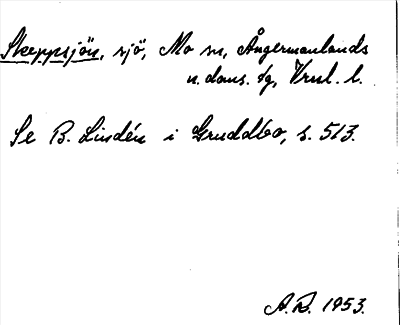 Skeppsjön, sjö, Mo sn, Ångermanlands
n. doms. tg, Vrnl. l.
Se B. Lindén i Gruddbo, s. 513.
A.R. 1953.